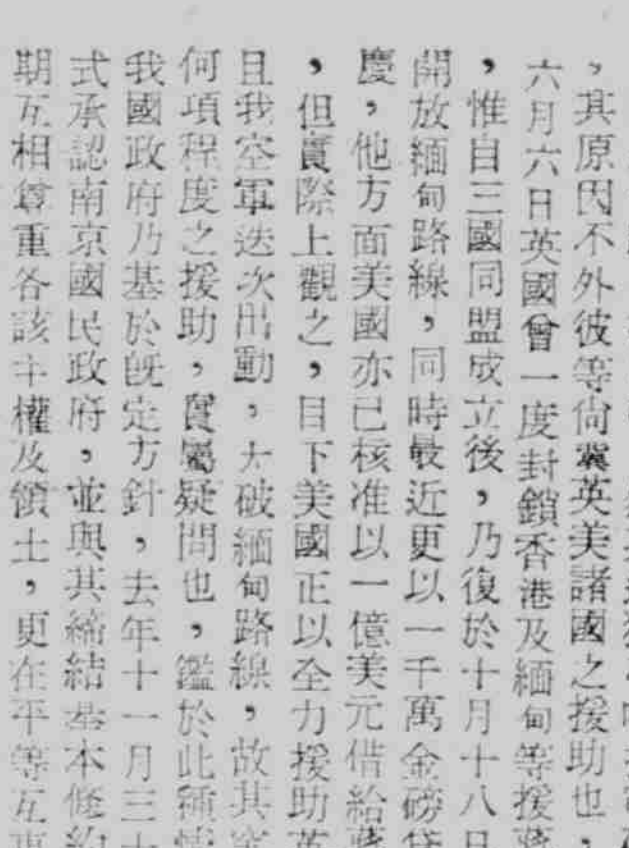 ，其原因不外彼等尙冀英美諸國之援助也，
六月六日英國曾一度封鎖香港及緬甸等援蔣
，惟自三國同盟成立後，乃復於十月十八日
開放緬甸路線，同時最近更以一千萬金磅貸
慶，他方面美國亦已核准以一億美元借給蔣
，但實際上觀之，目下美國正以全力援助英
且我空軍迭次出動，大破緬甸路線，故其究
何項程度之援助，實屬疑問也，鑑於此種情
我國政府乃基於旣定方針，去年十一月三十
式承認南京國民政府，並與其締結基本條約
期互相尊重各該主權及領土，更在平等互惠